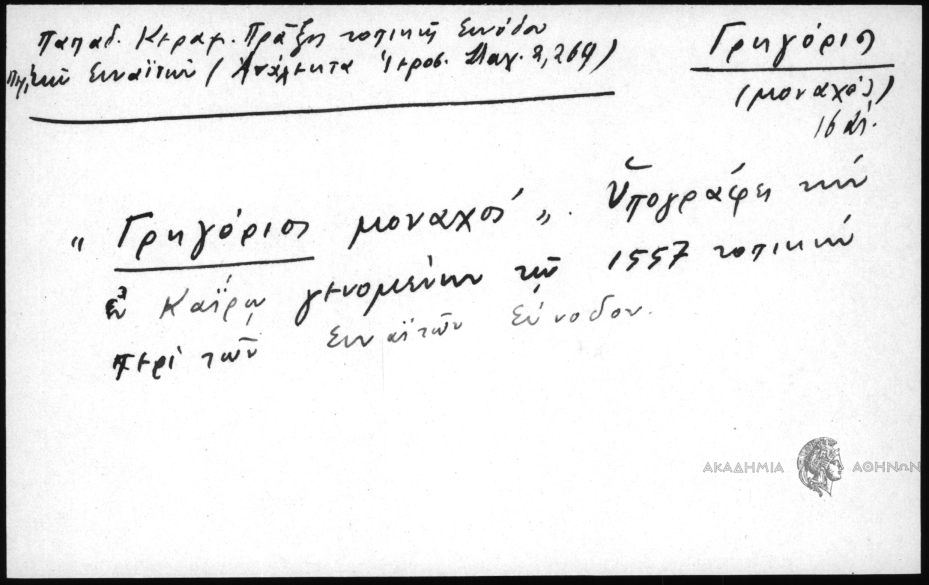 Παπαδ. Κεραμ. Πράξις τοπικῆς Συνόδου
περὶ τῶν Σιναϊτῶν (Ἀνάλεκτα Ἱεροσ. Σταχ. 2, 269)
Γρηγόριος
(μοναχός)
16 αἰ.
"Γρηγόριος μοναχός". Ὑπογράφει τὴν
ἐν Καΐρῳ γενομένην τῷ 1557 τοπικὴν
περὶ τῶν Σιναϊτῶν Σύνοδον.
ΑΚΑΔΗΜΙΑ ΑΘΗΝΩΝ